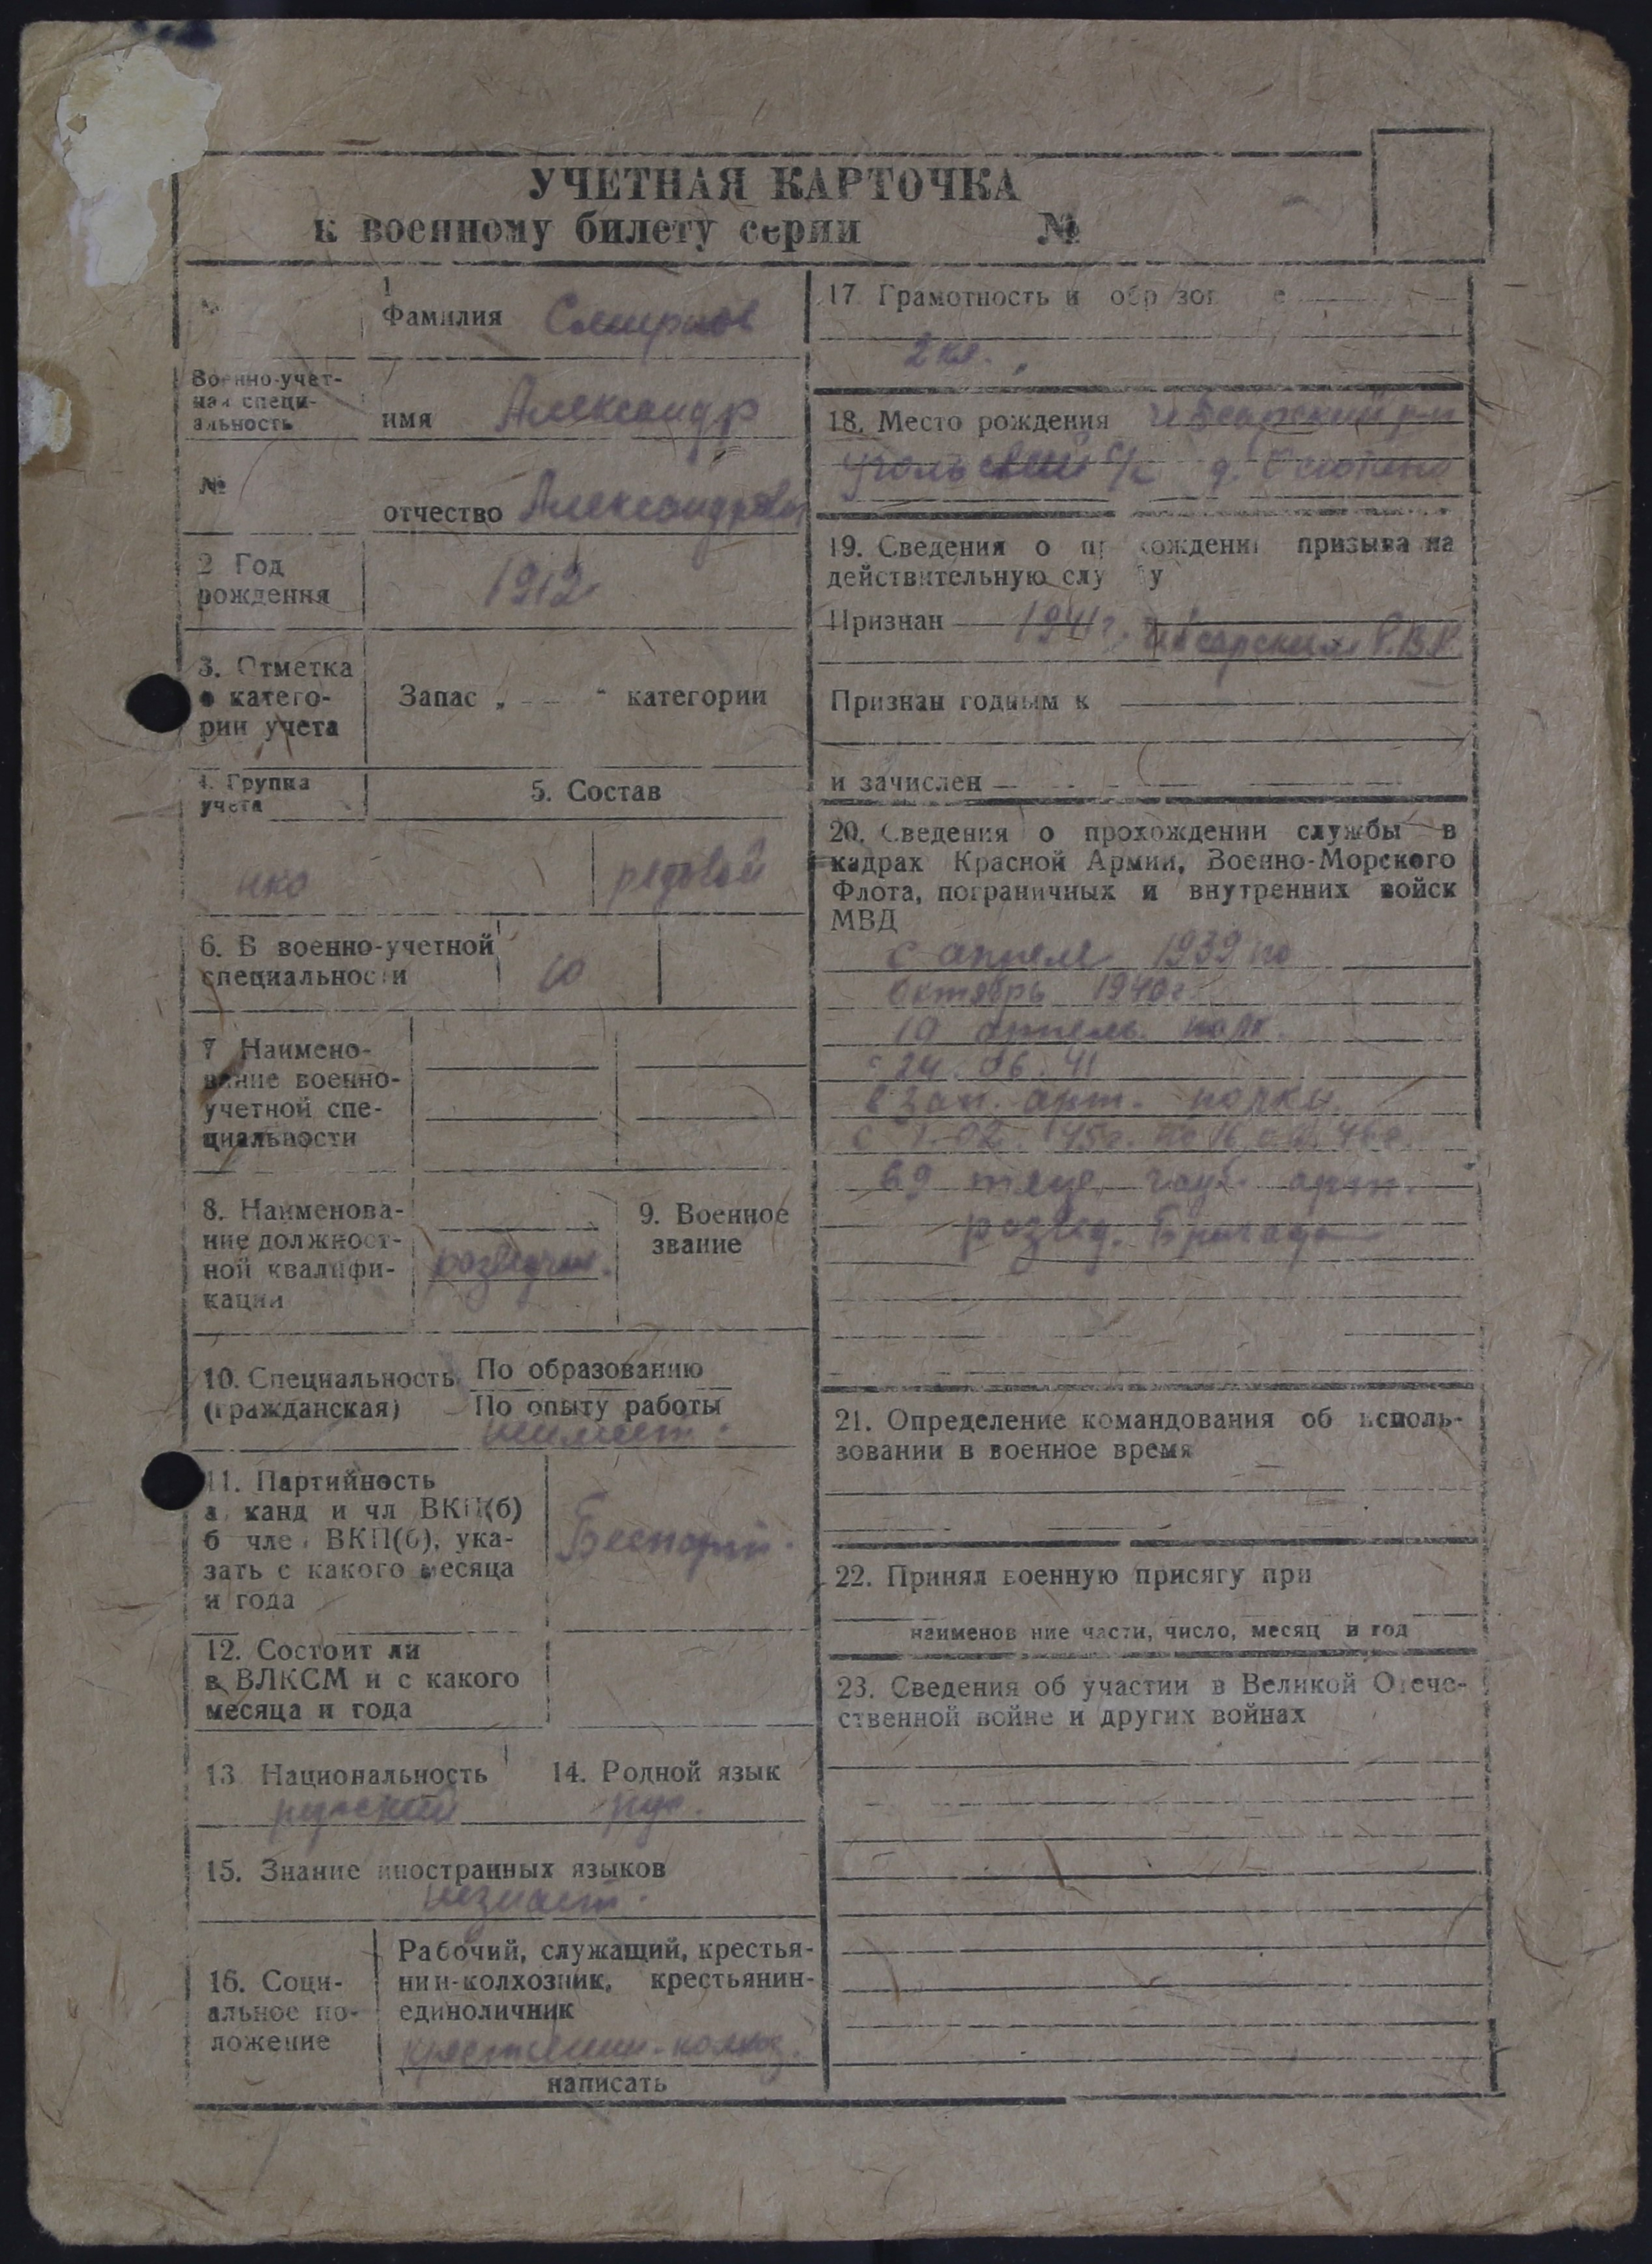 УЧЕТНАЯ КАРТОЧКА
к военному билету серии №
№
1
Фамилия Смирнов
Военно-учет-
ная специ-
альность
имя Александр
№
отчество Александрович
2 Год
рождения
1912
3. Отметка
о катего-
рии учета
Запас „ — “ категории
4. Группа
учета
5. Состав
нко
рядовой
6. В военно-учетной
специальности
10
7 Наимено-
вание военно-
учетной спе-
циальности
8. Наименова-
ние должност-
ной квалифи-
кации
разведчик.
9. Военное
звание
10. Специальность
(гражданская)
По образованию
По опыту работы
неимеет.
11. Партийность
а канд и чл ВКП(б)
б чле ВКП(б), ука-
зать с какого месяца
и года
Беспарт.
12. Состоит ли
в ВЛКСМ и с какого
месяца и года
13 Национальность
русский
14. Родной язык
рус.
15. Знание иностранных языков
незнает.
16. Соци-
альное по-
ложение
Рабочий, служащий, крестья-
нин-колхозник, крестьянин-
единоличник
крестьянин-колхоз.
написать
17. Грамотность и образование
2 кл.
18. Место рождения Чебсарский р-н
с/с д.
19. Сведения о прохождении призыва на
действительную службу
Признан 1941г. Чебсарским Р.В.К.
Признан годным к
и зачислен
20. Сведения о прохождении службы в
кадрах Красной Армии, Военно-Морского
Флота, пограничных и внутренних войск
МВД
с апреля 1939 по
октябрь 1940г.
10 полк.
с 24.06.41
в зап. арт. полку.
с 1.02 45г. по 46г.
69 тяже. гауб. арт.
развед. Бригада
21. Определение командования об исполь-
зовании в военное время
22. Принял военную присягу при
наименование части, число, месяц и год
23. Сведения об участии в Великой Отече-
ственной войне и других войнах